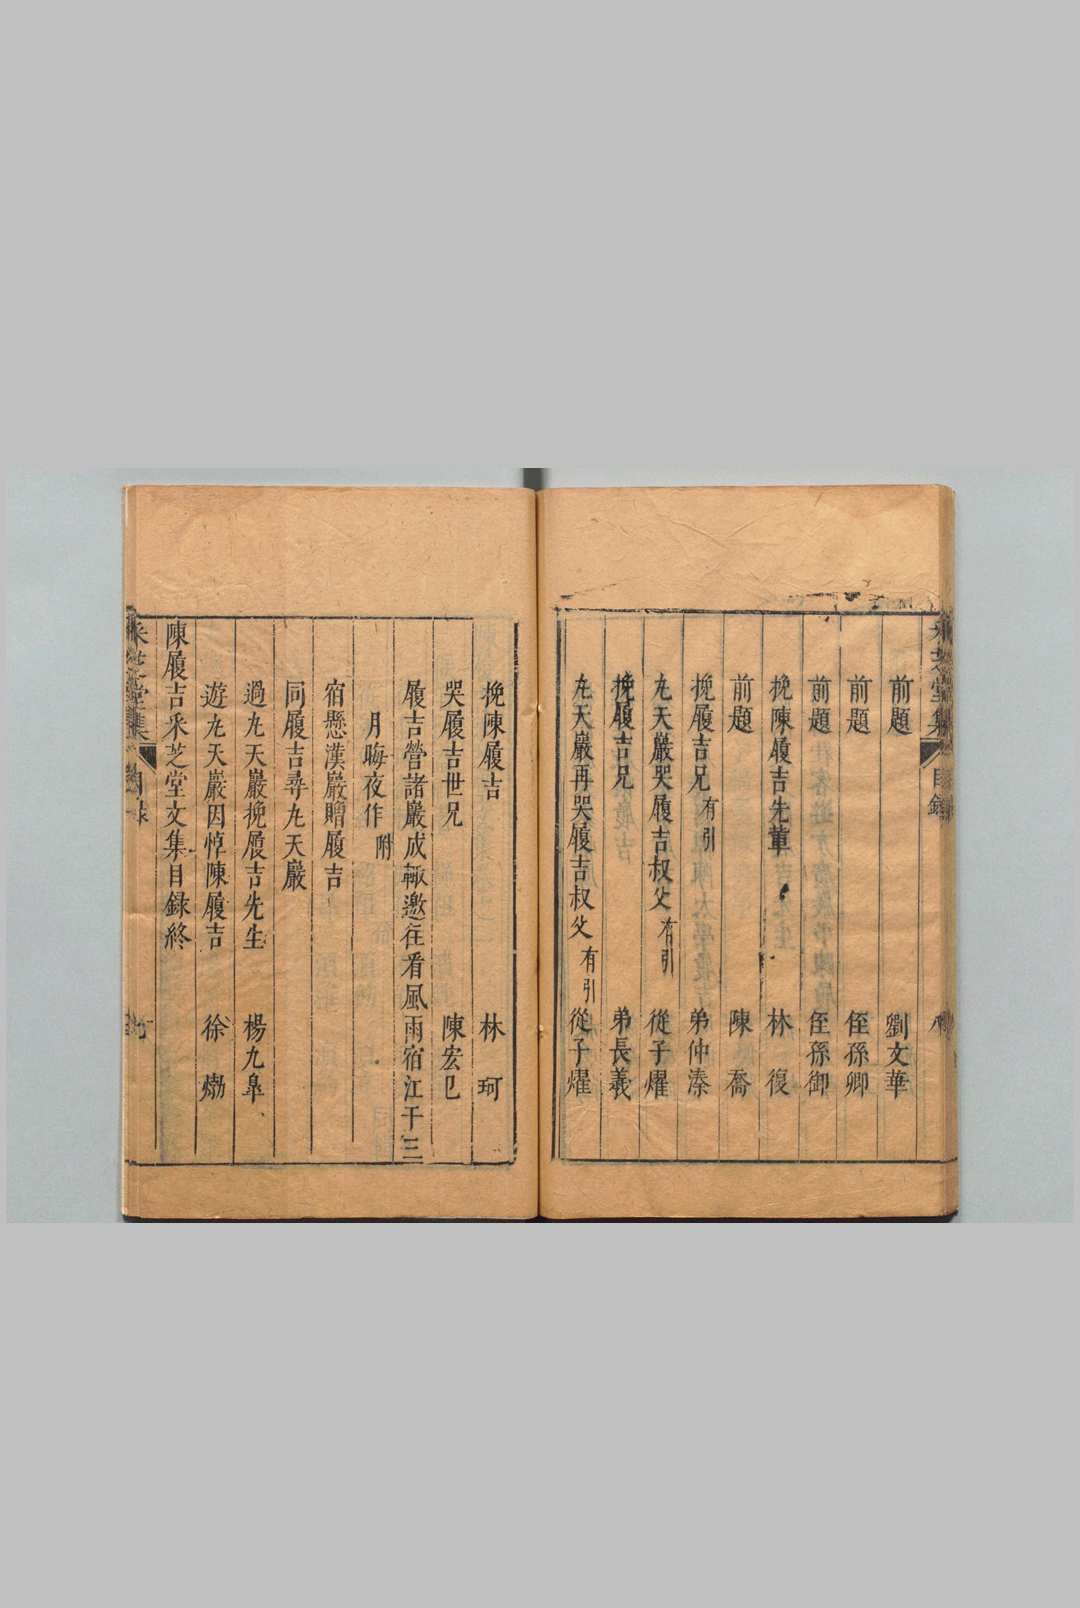 前題 劉文華
前題 侄孫卿
前題 侄孫御
挽陳履吉先輩 林復
前題 陳喬
挽履吉兄有引 弟仲溱
九天巖哭履吉叔父有引 從子燿
挽履吉兄 弟長義
九天巖再哭履吉叔父有引 從子燿
挽陳履吉 林珂
哭履吉世兄 陳宏巳
履吉營諸巖成輙邀徃看風雨宿江干三
月晦夜作附
宿懸漢巖贈履吉
同履吉尋九天巖
過九天巖挽履吉先生 楊九臯
遊九天巖因悼陳履吉 徐𤊹
陳履吉采芝堂文集目録終
采芝堂集 目録